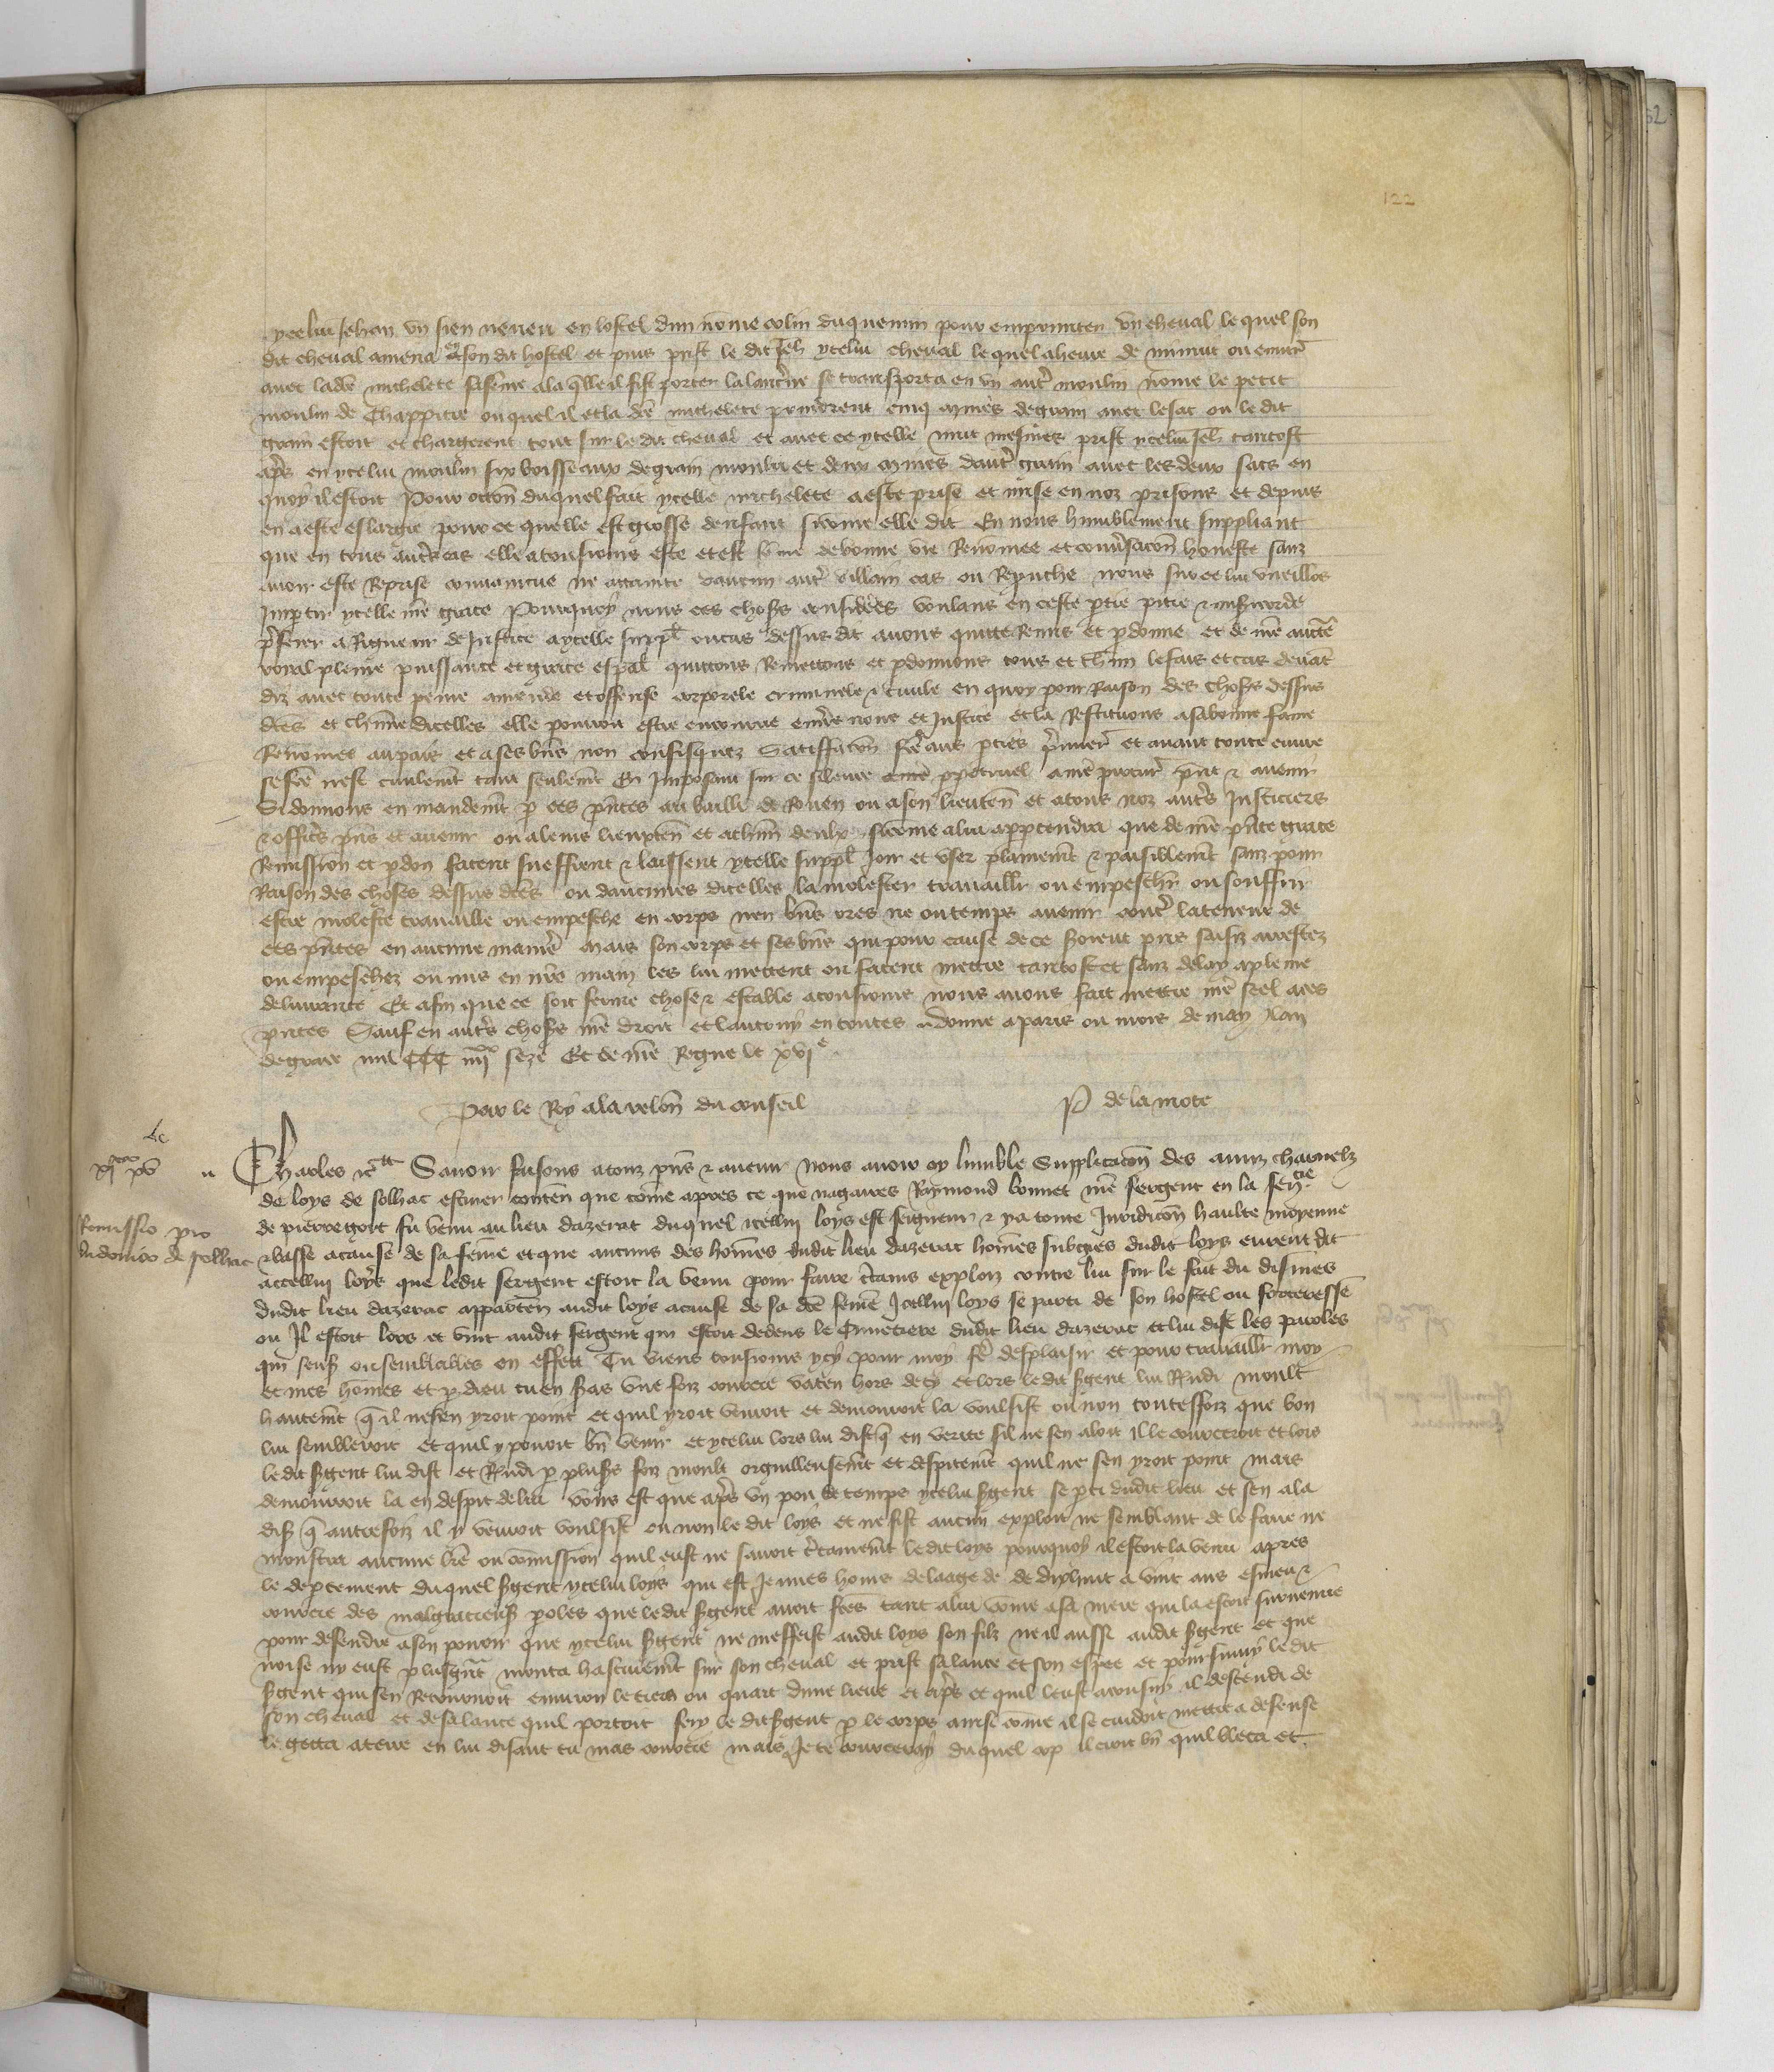 122
ycelui Jehan un sien neveu en lostel dun nõme colin duquemin pour emprunter un cheval lequel son
dit cheval amena a son dit hostel et puis prist le dit Jeh ycelui cheval lequel aheure de minuit ou environ
avec ladce michelete sa feme ala qlle il fist porter la lant'ne se transporta en un autr' moulin nõme le petit
moulin de Chappitre ouquel il et la dce michelete prindrent cinq mines de grain avec le sac ou le dit
grain estoit et chargerent tout sur le dit cheval et avec ce ycelle nuit mesmes prist ycelui Jeh tantost
apres en ycelui moulin six boisseaux de grain moulu et deux mines dautr' grain avec les deux sacs en
quoy il estoit Pour occon duquel fait ycelle michelete a este prise et mise en noz prisons et depuis
en a este eslargie pour ce quelle est grosse denfant sicome elle dit En nous humblement suppliant
que en tous autres cas elle a tousiours este et est feme de bonne vie Renõmee et conversacon honeste sanz
avoir este Reprise convaincue ne attainte daucun autr' villain cas ou Repruche nous sur ce lui vueillons
Impartir ycelle nre grace Pourquoy nous ces choses considerees voulans en ceste ptie pitie & misericorde
preferer a Rigueur de Justice aycelle suppl' ou cas dessus dit avons quitte Remis et pdonne et de nre aucte
roial pleine puissance et grace espal quittons Remettons et pdonnons tous et chun le fais et cas devat
diz avec toute peine amende et offense corporele criminele & civile en quoy pour Raison des choses dessus
dces et chune dicelles elle pourroit estre encourue envers nous et Justice et la Restituons asa bonne fame
Renõmee au pais et a ses biens non confisquez Satisfacon fce aus pties premier et avant toute euvre
se fce nest civilemt tant seulemt En Imposant sur ce silence a nre ppetuel a nre procur pnt & avenir
Si donnons en mandemt p ces pntes au bailli de Rouen ou a son lieuten et a tous noz autres Justiciers
& officiers pns et avenir ou a leurs lieuxten et a chun deulx sicome a lui apptendra que de nre pnte grace
Remission et pdon facent sueffrent & laissent ycelle suppl' Joir et user plainemt & paisiblemt sanz pour
Raison des choses dessus dces ou daucunes dicelles la molester travaillr ou empeschr ou souffrir
estre moleste travaille ou empesche en corps nen biens ores ne ou temps avenir contr' la teneur de
ces pntes en aucune maniere Mais son corps et ses biens qui pour cause de ce seroient pris saisiz arrestez
ou empeschez ou mis en nre main les lui mettent ou facent mettre tantost et sanz delay a pleine
delivrance Et afin que ce soit ferme chose & estable a tousiours nous avons fait mettre nre seel a ces
pntes Sauf en autres choses nre droit et lautruy en toutes donne a paris ou mois de may lan
de grace mil CCC iiii xx seze Et de nre Regne le xvi e
Par le Roy ala relon du conseil P de la mote
Charles &c Savoir faisons a touz pns & avenir nous avoir oy lumble Supplicacon des amis charnelz
de loys de solhac escuier conten que come apres ce que nagaires Raymond bonnet nre sergent en la senie
de pierregort fu venu au lieu dazerac duquel icellui loys est seigneur & y a toute Juridicon haulte moyenne
Remissio pro
ludovico de solhac
& basse a cause de sa feme et que aucuns des homes dudit lieu dazerac homes subgies dudit loys eurent dit
a icellui loys que ledit sergent estoit la venu pour faire ctains exploiz contre lui sur le fait du disines
dudit lieu dazerac apparten audit loys a cause de sa dce feme Icellui loys se parti de son hostel ou forteresse
ou Il estoit lors et vint audit sergent qui estoit dedens le Cimetiere dudit lieu dazerac et lui dist les paroles
qui sens ou semblables en effect Tu viens tousiours ycy pour moy fe desplaisir et pour travaillr moy
et mes homes et p dieu tu en seras une foiz courcie vaten hors de cy et lors le dit sgent lui Rndi moult
hautemt q il nesen yroit point et quil yroit venroit et demourroit la voulsist ou non toutesfoiz que bon
lui sembleroit et quil y povoit bn venir et ycelui lors lui dist q en verite sil ne sen aloit Il le courceroit et lors
le dit sgent lui dist et Rndi p plusrs foiz moult orguilleusemt et despitemt quil ne sen yroit point mais
demourroit la en despit de lui voirs est que apres un pou de temps ycelui sgent se pti dudit lieu et sen ala
dist q autresfoiz il y venroit voulsist ou non le dit loys et ne fist aucun exploit ne semblant de le faire ne
monstra aucune lre ou comission quil eust ne savoit ctainemt le dit loys pourquoy il estoit la venu apres
le deptement duquel sgent ycelui loys qui est Jeunes homs de laage de de dixhuit a vint ans esmeu &
courcie des malgracieuses poles que le dit sgent avoit fces tant a lui come a sa mere qui la estoit survenue
pour defendre a son povoir que ycelui sgent ne meffeist audit loys son filz ne il aussi audit sgent et que
noise ny eust plusgnt monta hastivemt sur son cheval et prist sa lance et son espee et poursuivy le dit
sgent qui sen Retournoit environ le tiers ou quart dune lieue et apres ce quil leust aconsuy il descendi de
son cheval et de sa lance quil portoit fery le dit sgent p le corps ainsi come il se cuidoit mettre a defense
le getta a terre en lui disant tu mas courcie mais Je te courceray duquel cop il croit bn quil bleca et